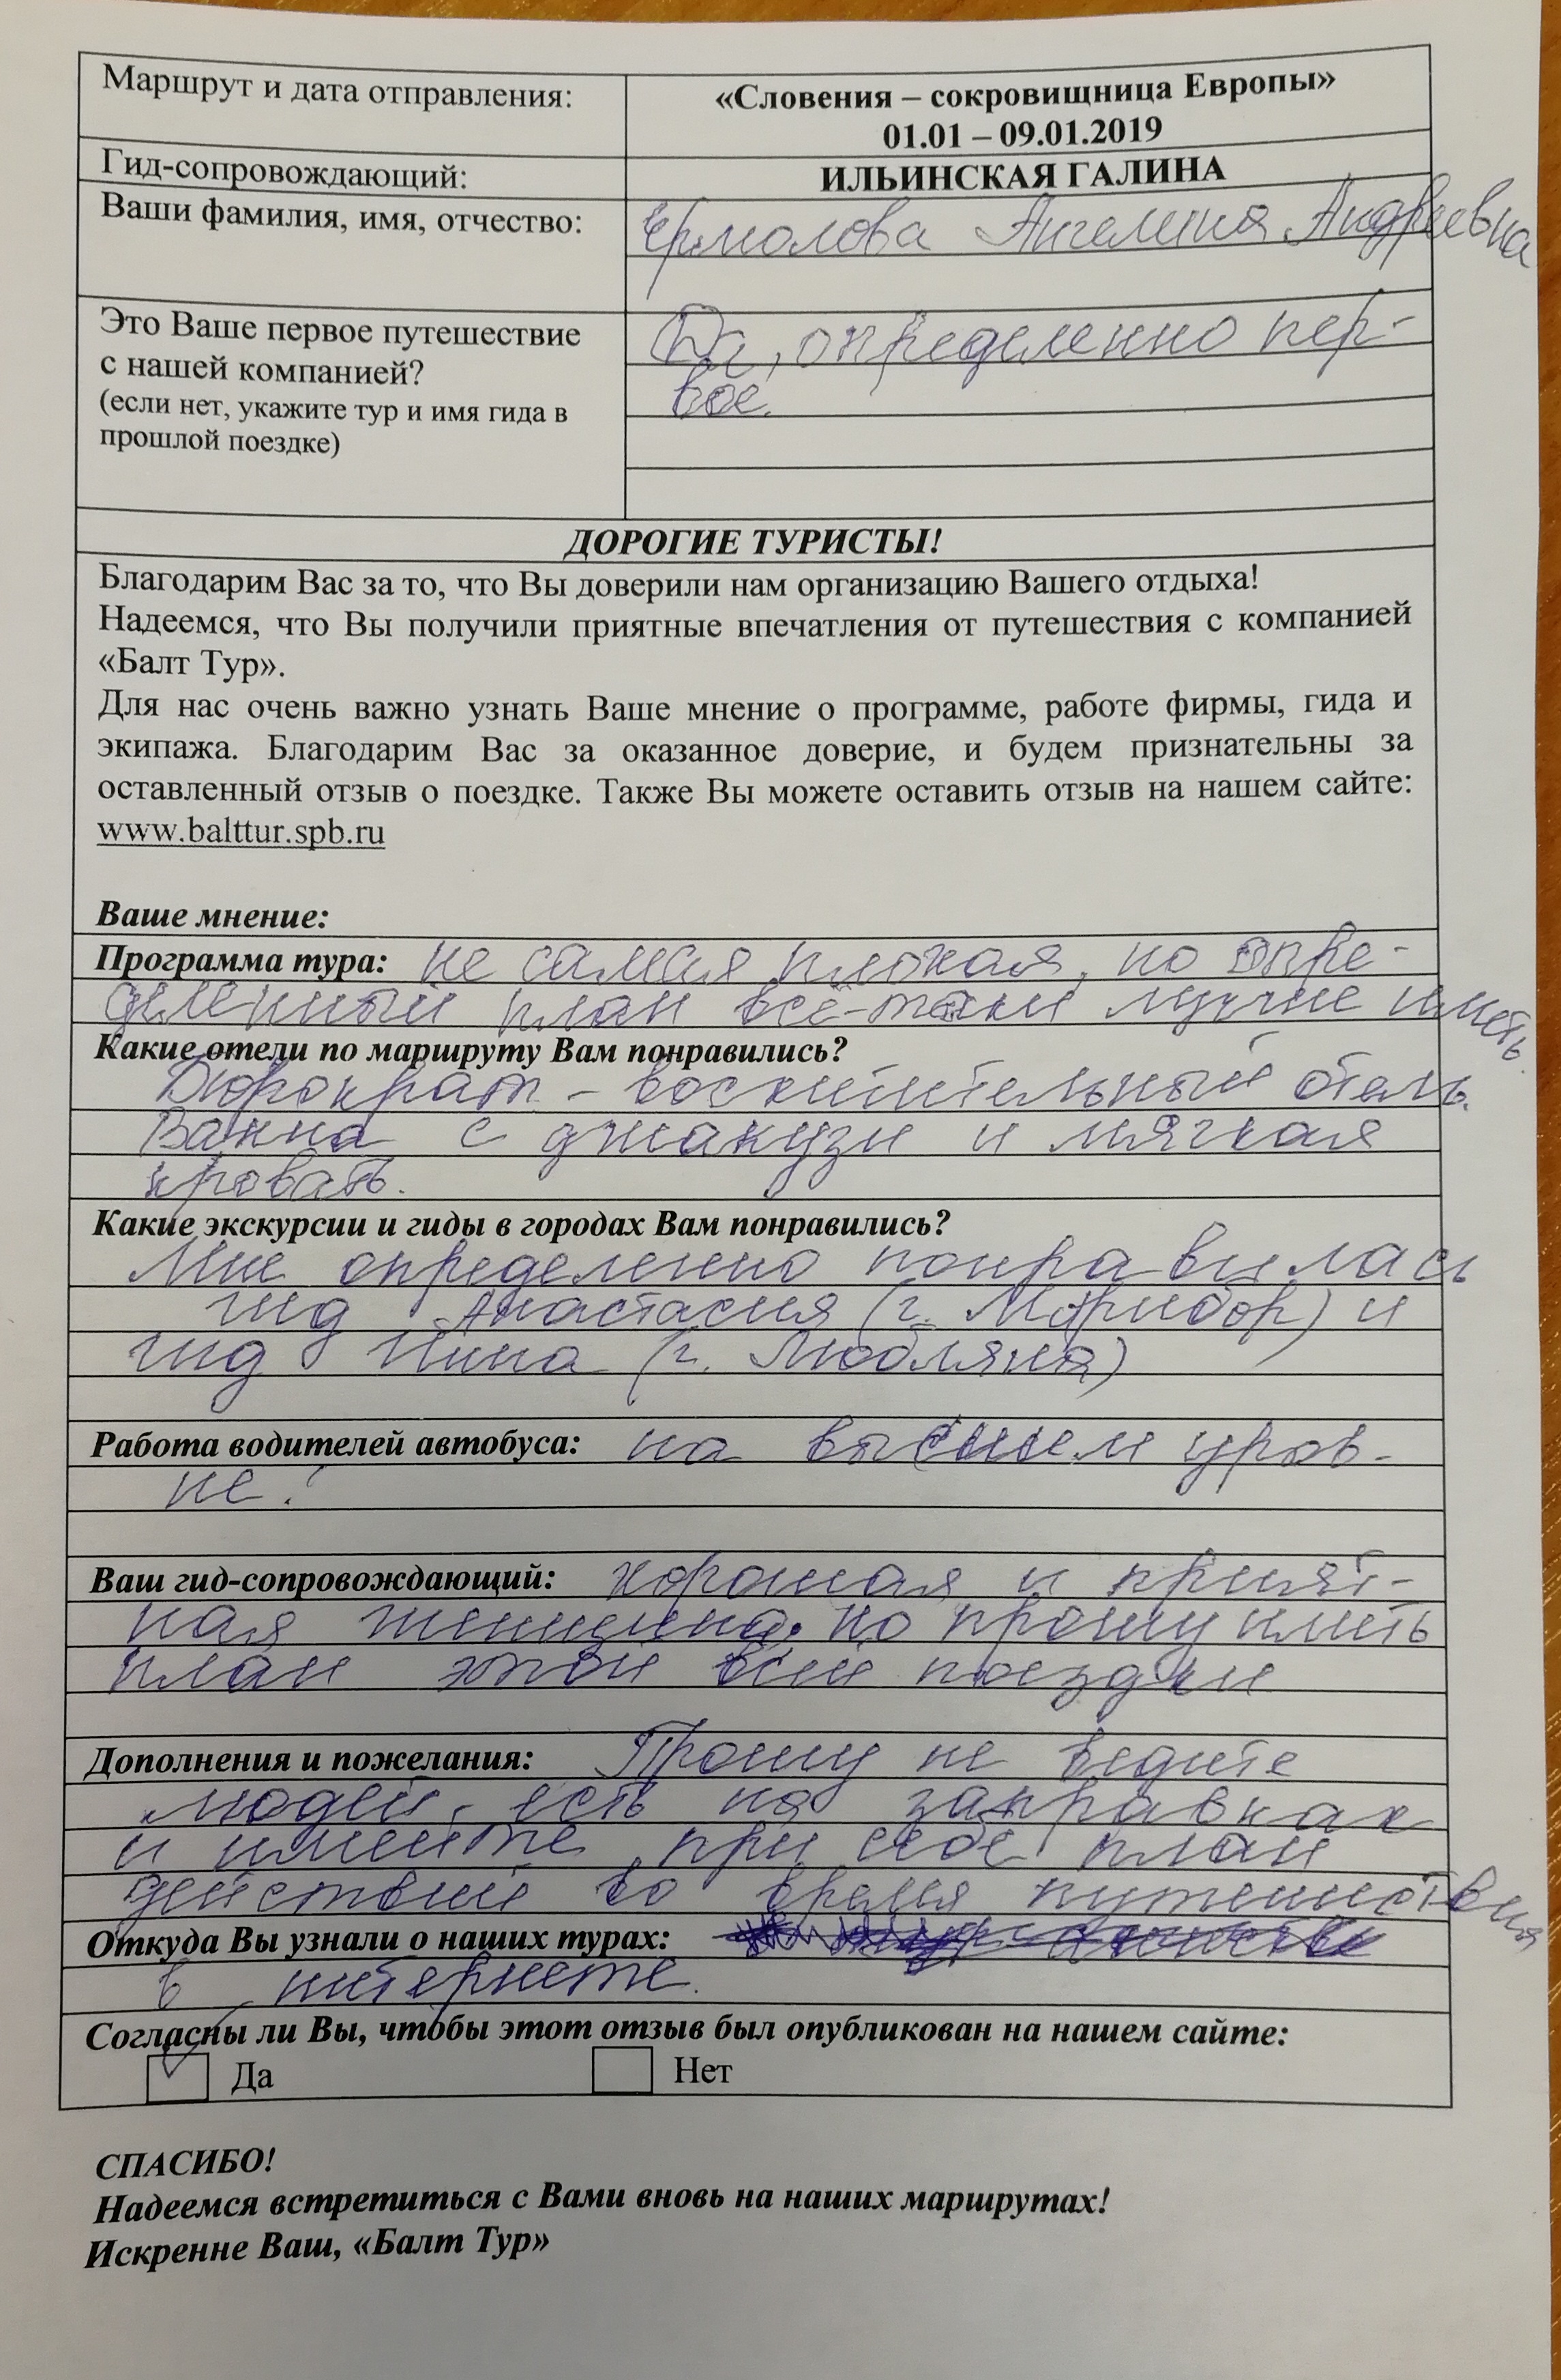 Маршрут и дата отправления:
«Словения – сокровищница Европы»
01.01 – 09.01.2019
Гид-сопровождающий:
ИЛЬИНСКАЯ ГАЛИНА
Ваши фамилия, имя, отчество:
Ермолова Ангелина Андреевна
Это Ваше первое путешествие
с нашей компанией?
(если нет, укажите тур и имя гида в
прошлой поездке)
Да, определенно пер-
вое.
ДОРОГИЕ ТУРИСТЫ!
Благодарим Вас за то, что Вы доверили нам организацию Вашего отдыха!
Надеемся, что Вы получили приятные впечатления от путешествия с компанией
«Балт Тур».
Для нас очень важно узнать Ваше мнение о программе, работе фирмы, гида и
экипажа. Благодарим Вас за оказанное доверие, и будем признательны за
оставленный отзыв о поездке. Также Вы можете оставить отзыв на нашем сайте:
www.balttur.spb.ru
Ваше мнение:
Программа тура: не самая плохая, но опре-
деленный план всё-таки лучше иметь.
Какие отели по маршруту Вам понравились?
- восхитительный отель.
Ванна с джакузи и мягкая
кровать.
Какие экскурсии и гиды в городах Вам понравились?
Мне определенно понравилась
гид Анастасия (г. Марибор) и
гид Нина (г. Любляна)
Работа водителей автобуса: на высшем уров-
не!
Ваш гид-сопровождающий: хорошая и прият-
ная женщина. но прошу иметь
план этой всей поездки
Дополнения и пожелания: Прошу не ведите
людей есть на заправках
и имейте при себе план
действий во время путешествия
Откуда Вы узнали о наших турах:
в интернете.
Согласны ли Вы, чтобы этот отзыв был опубликован на нашем сайте:
Да Нет
СПАСИБО!
Надеемся встретиться с Вами вновь на наших маршрутах!
Искренне Ваш, «Балт Тур»